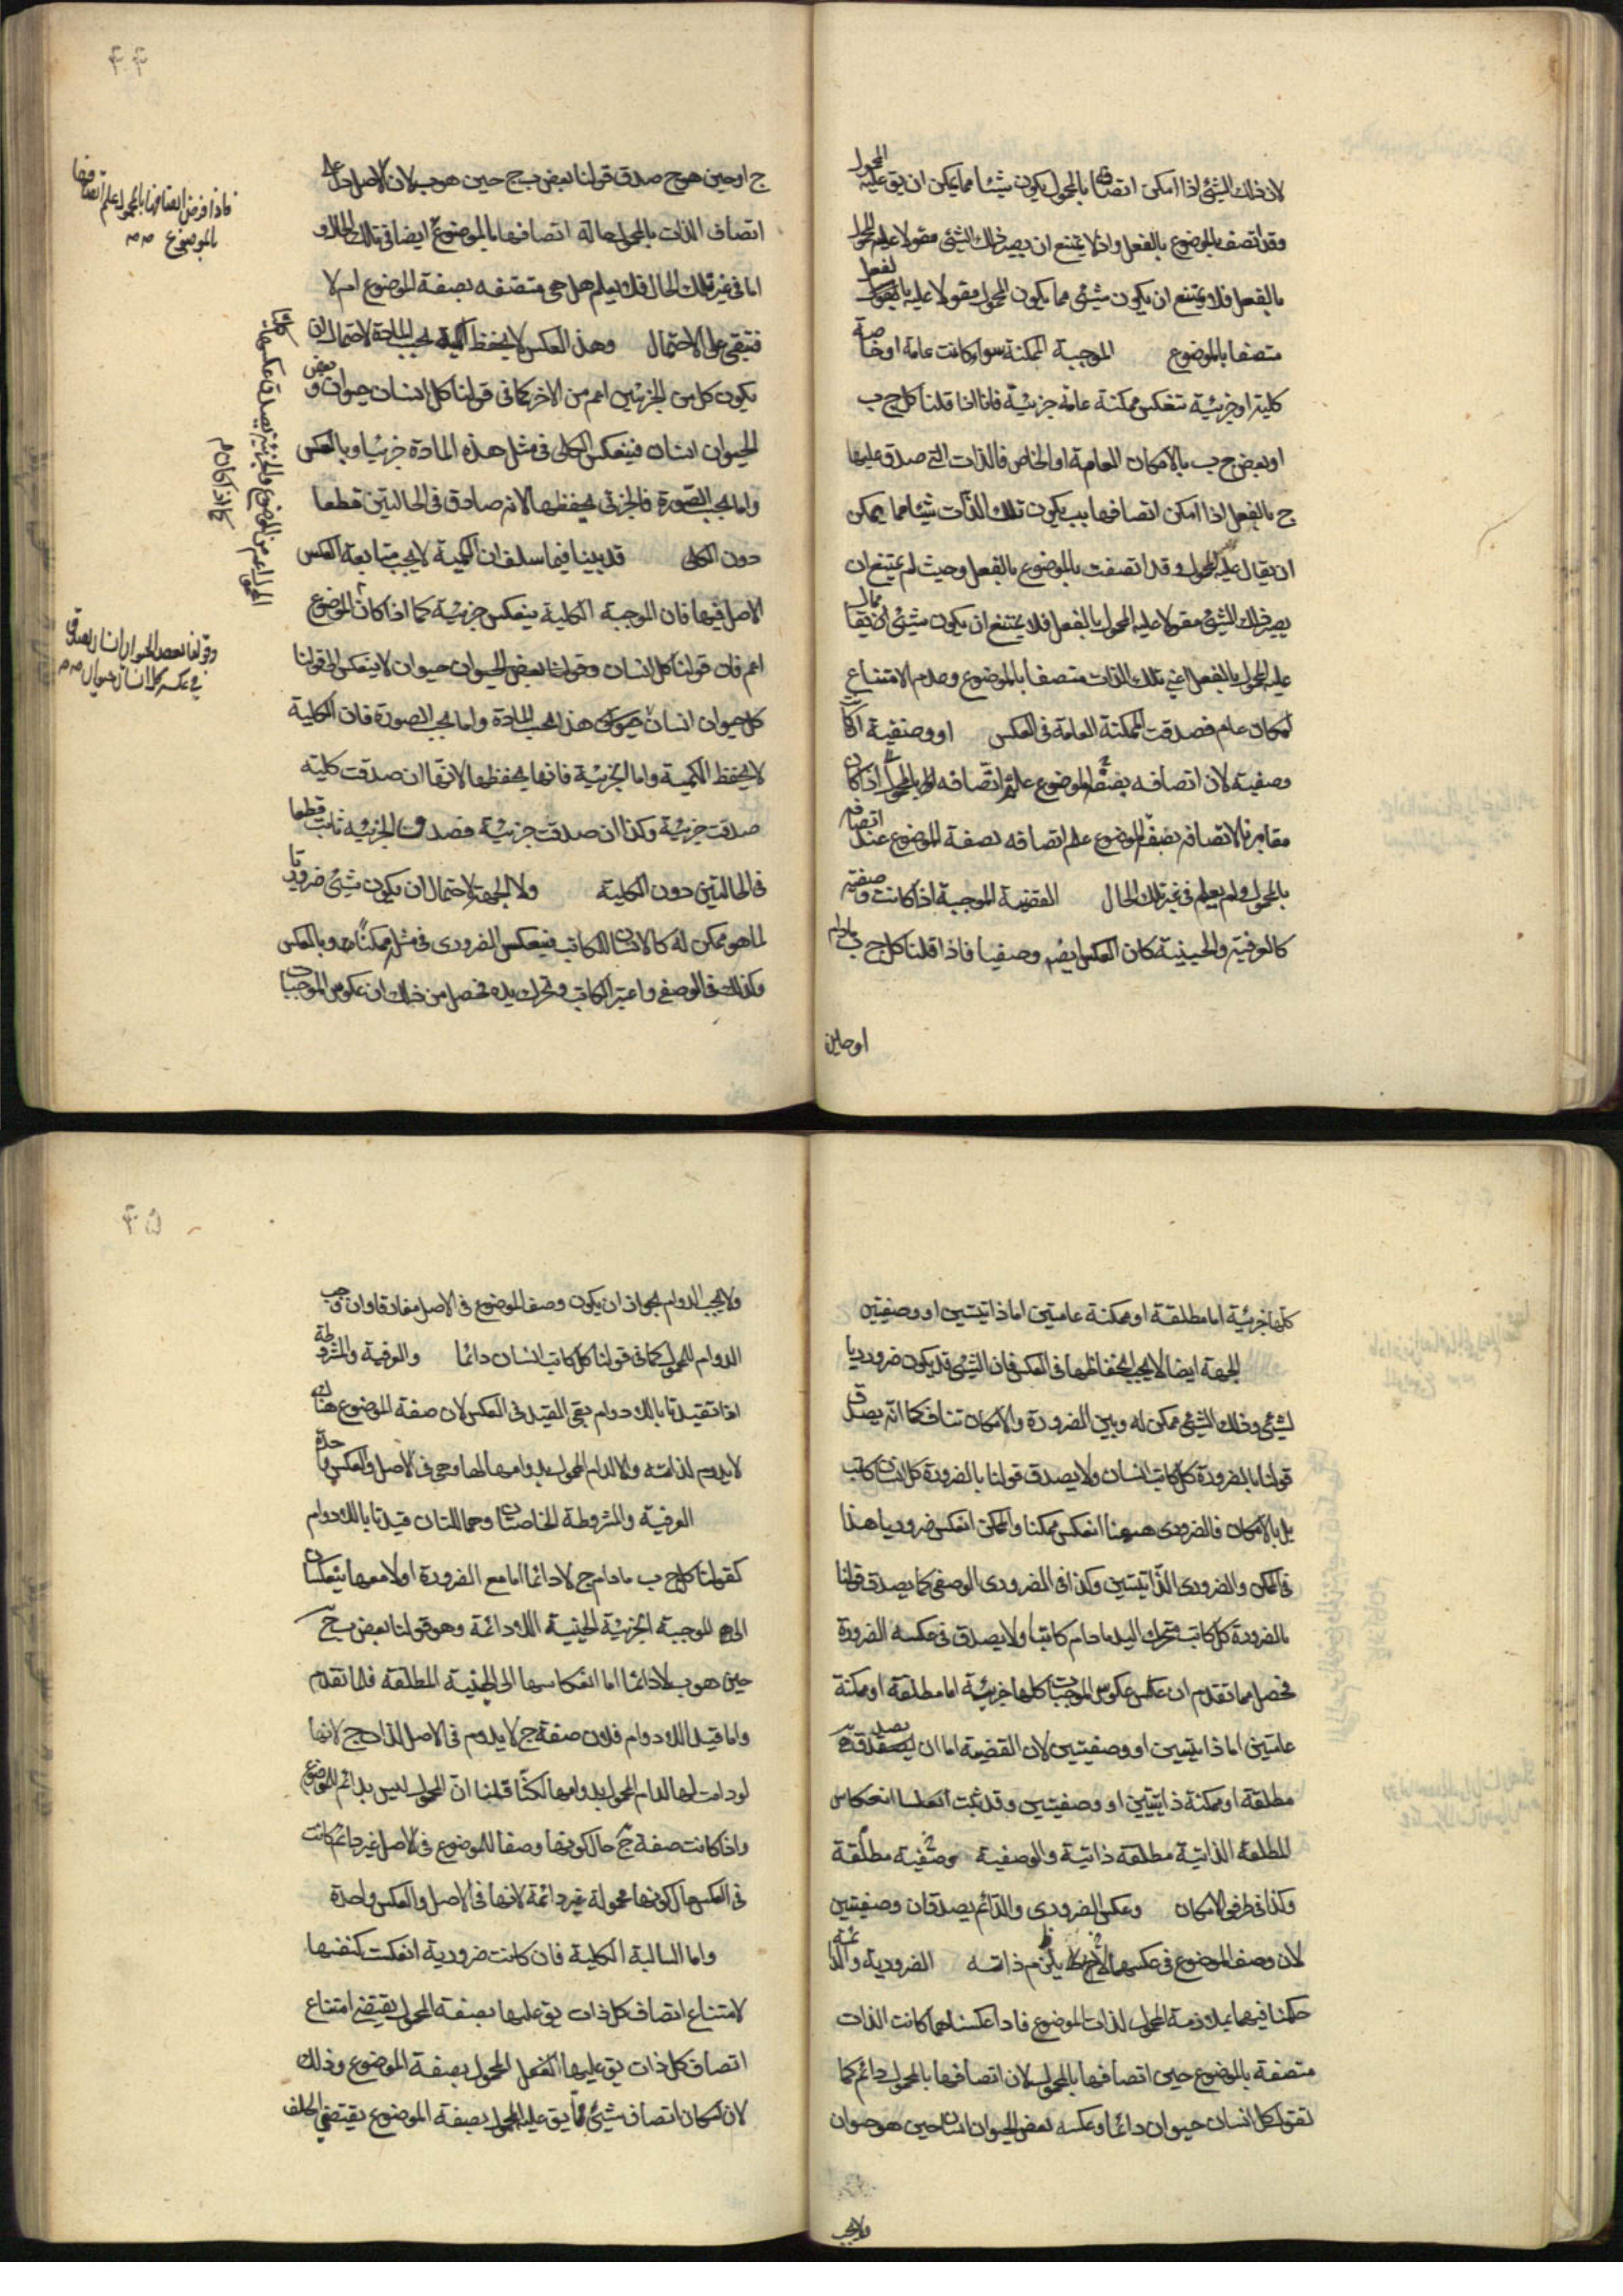 لان ذلك الشئ اذا امكن اتصافه بالمحمول يكون شيئا مما يمكن ان يق عليه المحمول
وقد اتصف بالموضوع بالفعل واذ لا يمتنع ان يصير ذلك الشئ مقولا عليه المحمول
بالفعل فلا يمتنع ان يكون شئ مما يكون المحمول مقولا عليه بالفعل
متصفا بالموضوع الموجبة الممكنة سواء كانت عامة او خاصة
كلية او جزئية تنعكس ممكنة عامة جزئية فانا اذا قلنا كل ج ب
او بعض ج ب بالامكان العام او الخاص فالذات التي صدق عليها
ج بالفعل اذا امكن اتصافها بب يكون تلك الذات شيئا مما يمكن
ان يقال عليه المحمول وقد اتصفت بالموضوع بالفعل وحيث لم يمتنع ان
يصير ذلك الشئ مقولا عليه المحمول بالفعل فلا يمتنع ان يكون شئ ان يقال
عليه المحمول بالفعل اعني تلك الذات متصفا بالموضوع وعدم الامتناع
امكان عام فصدقت الممكنة العامة في العكس او وصفية
وصفية لان اتصافه بصفة الموضوع علم اتصافه بالمحمول اذا كان
مقارنا لاتصافه بصفة الموضوع علم اتصافه بصفة الموضوع عند اتصافه
بالمحمول ولم يعلم في غير تلك الحال القضية الموجبة اذا كانت وصفية
كالعرفية والحينية كان العكس ايضم وصفيا فاذا قلنا كل ج ب مادام
او حين
٤٤
ج او حين هو ج صدق قولنا بعض ب ج حين هو ب لان الاصل دل على
اتصاف الذات بالمحمول حالة اتصافها بالموضوع ايضا في تلك الحال و
اما في غير تلك الحال فلا يعلم هل هي متصفه بصفة الموضوع ام لا
فتبقى على الاحتمال وهذا العكس لا يحفظ الكمية بحسب المادة لاحتمال ان
يكون كل من الجزئين اعم من الاخر كما في قولنا كل انسان حيوان وبعض
الحيوان انسان فينعكس الكلى في مثل هذه المادة جزئيا وبالعكس
واما بحسب الصورة فالجزئي يحفظها لانه صادق في الحالتين قطعا
دون الكلى قد بينا فيما سلف ان الكمية لا يجب متابعة العكس
الاصل فيها فان الموجبة الكلية ينعكس جزئية كما اذا كان الموضوع
اعم فان قولنا كل انسان وقولنا بعض الحيوان حيوان لا ينعكس الى قولنا
كل حيوان انسان هذا بحسب المادة واما بحسب الصورة فان الكلية
لا يحفظ الكمية واما الجزئية فانها يحفظها لانها ان صدقت كلية
صدقت جزئية وكذا ان صدقت جزئية فصدقت الجزئيه ثابت قطعا
في الحالتين دون الكلية ولا الجهة لاحتمال ان يكون شئ ضروريا
لما هو ممكن له كالانسان للكاتب فينعكس الضرورى في مثله ممكنا وبالعكس
وكذلك في الوصفي واعتبر الكاتب وتحرك يده فحصل من ذلك ان عكوس الموجبات
فاذا فرض اتصافها بالمحمول علم اتصافها
بالموضوع صه
وقولنا بعض الحيوان انسان يصدق
في عكسه كل انسان حيوان صه
كلها جزئية اما مطلقة او ممكنة عامتين اما ذاتيتين او وصفيتين
الجهة ايضا لا يجب انحفاظها في العكس فان الشئ قد يكون ضروريا
لشئ وذلك الشئ ممكن له وبين الضرورة والامكان تناف كما انه يصدق
قولنا بالضرورة كل كاتب انسان ولا يصدق قولنا بالضرورة كل انسان كاتب
بل بالامكان فالضرورى ههنا انعكس ممكنا والممكن انعكس ضروريا هذا
في الممكن والضرورى الذاتيتين وكذا في الضرورى الوصفي كما يصدق قولنا
بالضرورة كل كاتب متحرك اليد مادام كاتبا ولا يصدق في عكسه الضرورة
فحصل مما تقدم ان عكوس الموجبات كلها جزئية اما مطلقة او ممكنة
عامتين اما ذاتيتين او وصفيتين لان القضية اما ان يصدق
مطلقة او ممكنة ذاتيتين او وصفيتين وقد ثبت انعكاس
المطلقة الذاتية مطلقة ذاتية والوصفية وصفية مطلقة
وكذا في طرفي الامكان وعكس الضرورى والدائم يصدقان وصفيتين
لان وصف الموضوع في عكسهما يلزم ذاته الضرورية والدائمة
حكمنا فيهما بملازمة المحمول لذات الموضوع فاذا عكسناهما كانت الذات
متصفة بالموضوع حين اتصافها بالمحمول لان اتصافها بالمحمول دائم كما
تقول كل انسان حيوان دائما وعكسه بعض الحيوان انسان حين هو حيوان
ولا يجب
٤٥
ولا يجب الدوام لجواز ان يكون وصف الموضوع في الاصل مفارقا وان وجب
الدوام للمحمول كما في قولنا كل كاتب انسان دائما والعرفية والمشروطة
اذا تقيدتا باللادوام بقي القيد في العكس لان صفة الموضوع هناك
لا يدوم لذاته والا لدام المحمول بدوامها لها وهي في الاصل والعكس واحدة
العرفية والمشروطة الخاصتان وهما اللتان قيدتا باللادوام
كقولنا كل ج ب مادام ج لا دائما اما مع الضرورة او لا معها ينعكسان
الى الموجبة الجزئية الحينية اللادائمة وهو قولنا بعض ب ج
حين هو ب لا دائما اما انعكاسها الى الحينية المطلقة فلما تقدم
واما قيد اللادوام فلان صفة ج لا يدوم في الاصل لذات ج لانها
لو دامت لها لدام المحمول بدوامها لكنا قلنا ان المحمول ليس بدائم للموضوع
واذا كانت صفة ج حال كونها وصفا للموضوع في الاصل غير دائم كانت
في العكس حال كونها محمولة غير دائمة لانها في الاصل والعكس واحدة
واما السالبة الكلية فان كانت ضرورية انعكست كنفسها
لامتناع اتصاف كل ذات يق عليها بصفة المحمول يقتضي امتناع
اتصاف كل ذات يق عليها المحمول بصفة الموضوع وذلك
لان امكان اتصاف شئ مما يق عليه المحمول بصفة الموضوع يقتضي الخلف